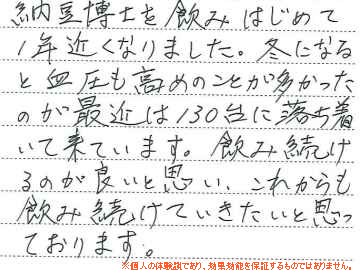 納豆博士を飲みはじめて
1年近くなりました。冬になる
と血圧も高めのことが多かった
のが最近は130台に落ち着
いて来ています。飲み続け
るのが良いと思い、これからも
飲み続けていきたいと思っ
ております。
※個人の体験談であり、効果効能を保証するものではありません。